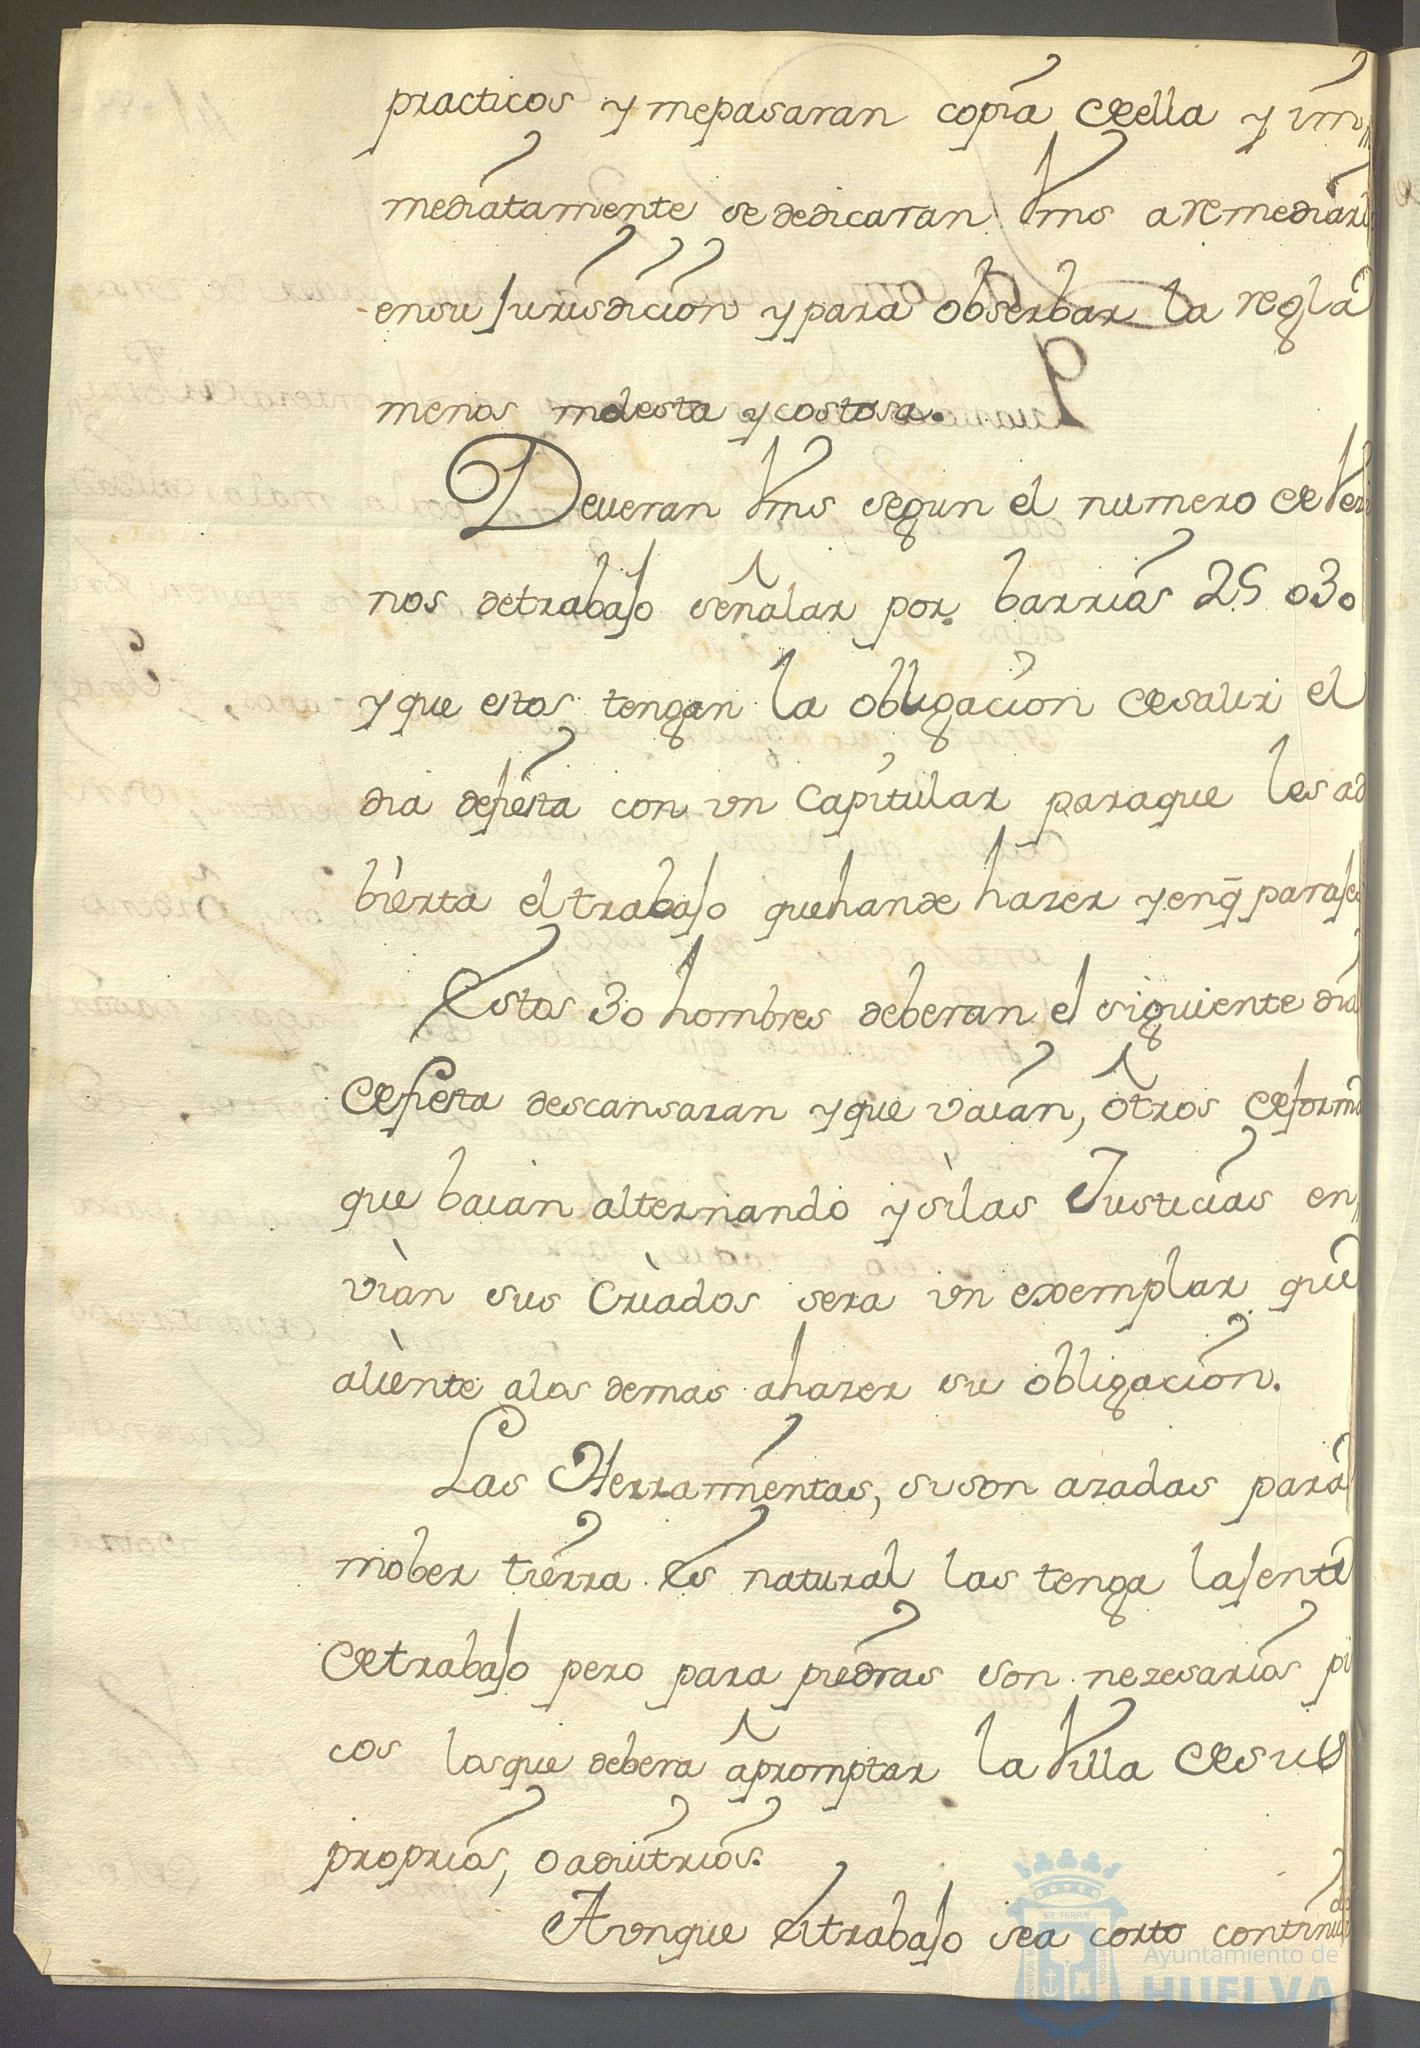 practicos y mepasaran copia deella y im
mediatamente se dedicaran Vms aremediarlo
ensu Jurisdicion y para obserbar la regla
menos molesta y costosa.
Deveran Vms segun el numero de Veci
nos detrabajo señalar por barrios 25 o 30
y que estos tengan la obligacion desalir el
dia defiesta con un Capitular paraque les ad
bierta el trabajo quehande hazer y enq̃ parajes
Estos 30 hombres deberan el siguiente dia
defiesta descansaran y que vaian, otros deforma
que baian alternando y silas Justicias en
vian sus Criados sera un exemplar que
aliente alos demas ahazer su obligacion.
Las Herramientas, si son azadas para
mober tierra es natural las tenga lajente
detrabajo pero para piedras son nezesarios pi
cos losque debera apromptar la Villa desus
proprios, o aduitrios.
Aunque eltrabajo sea corto
Ayuntamiento de
HUELVA